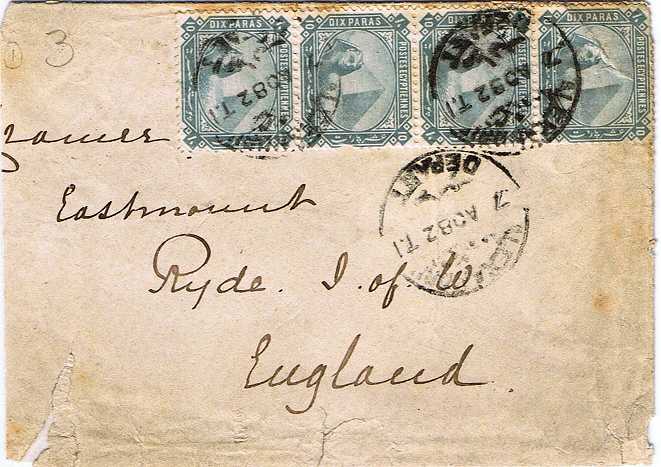 3
DIX PARAS DIX PARAS DIX PARAS DIX PARAS
POSTES EGYPTIENNES POSTES EGYPTIENNES POSTES EGYPTIENNES POSTES EGYPTIENNES
DEPART
7 AO 82 T.1
DEPART
7 AO 82 T.1
Eastmount
Ryde. I. of. W.
England.